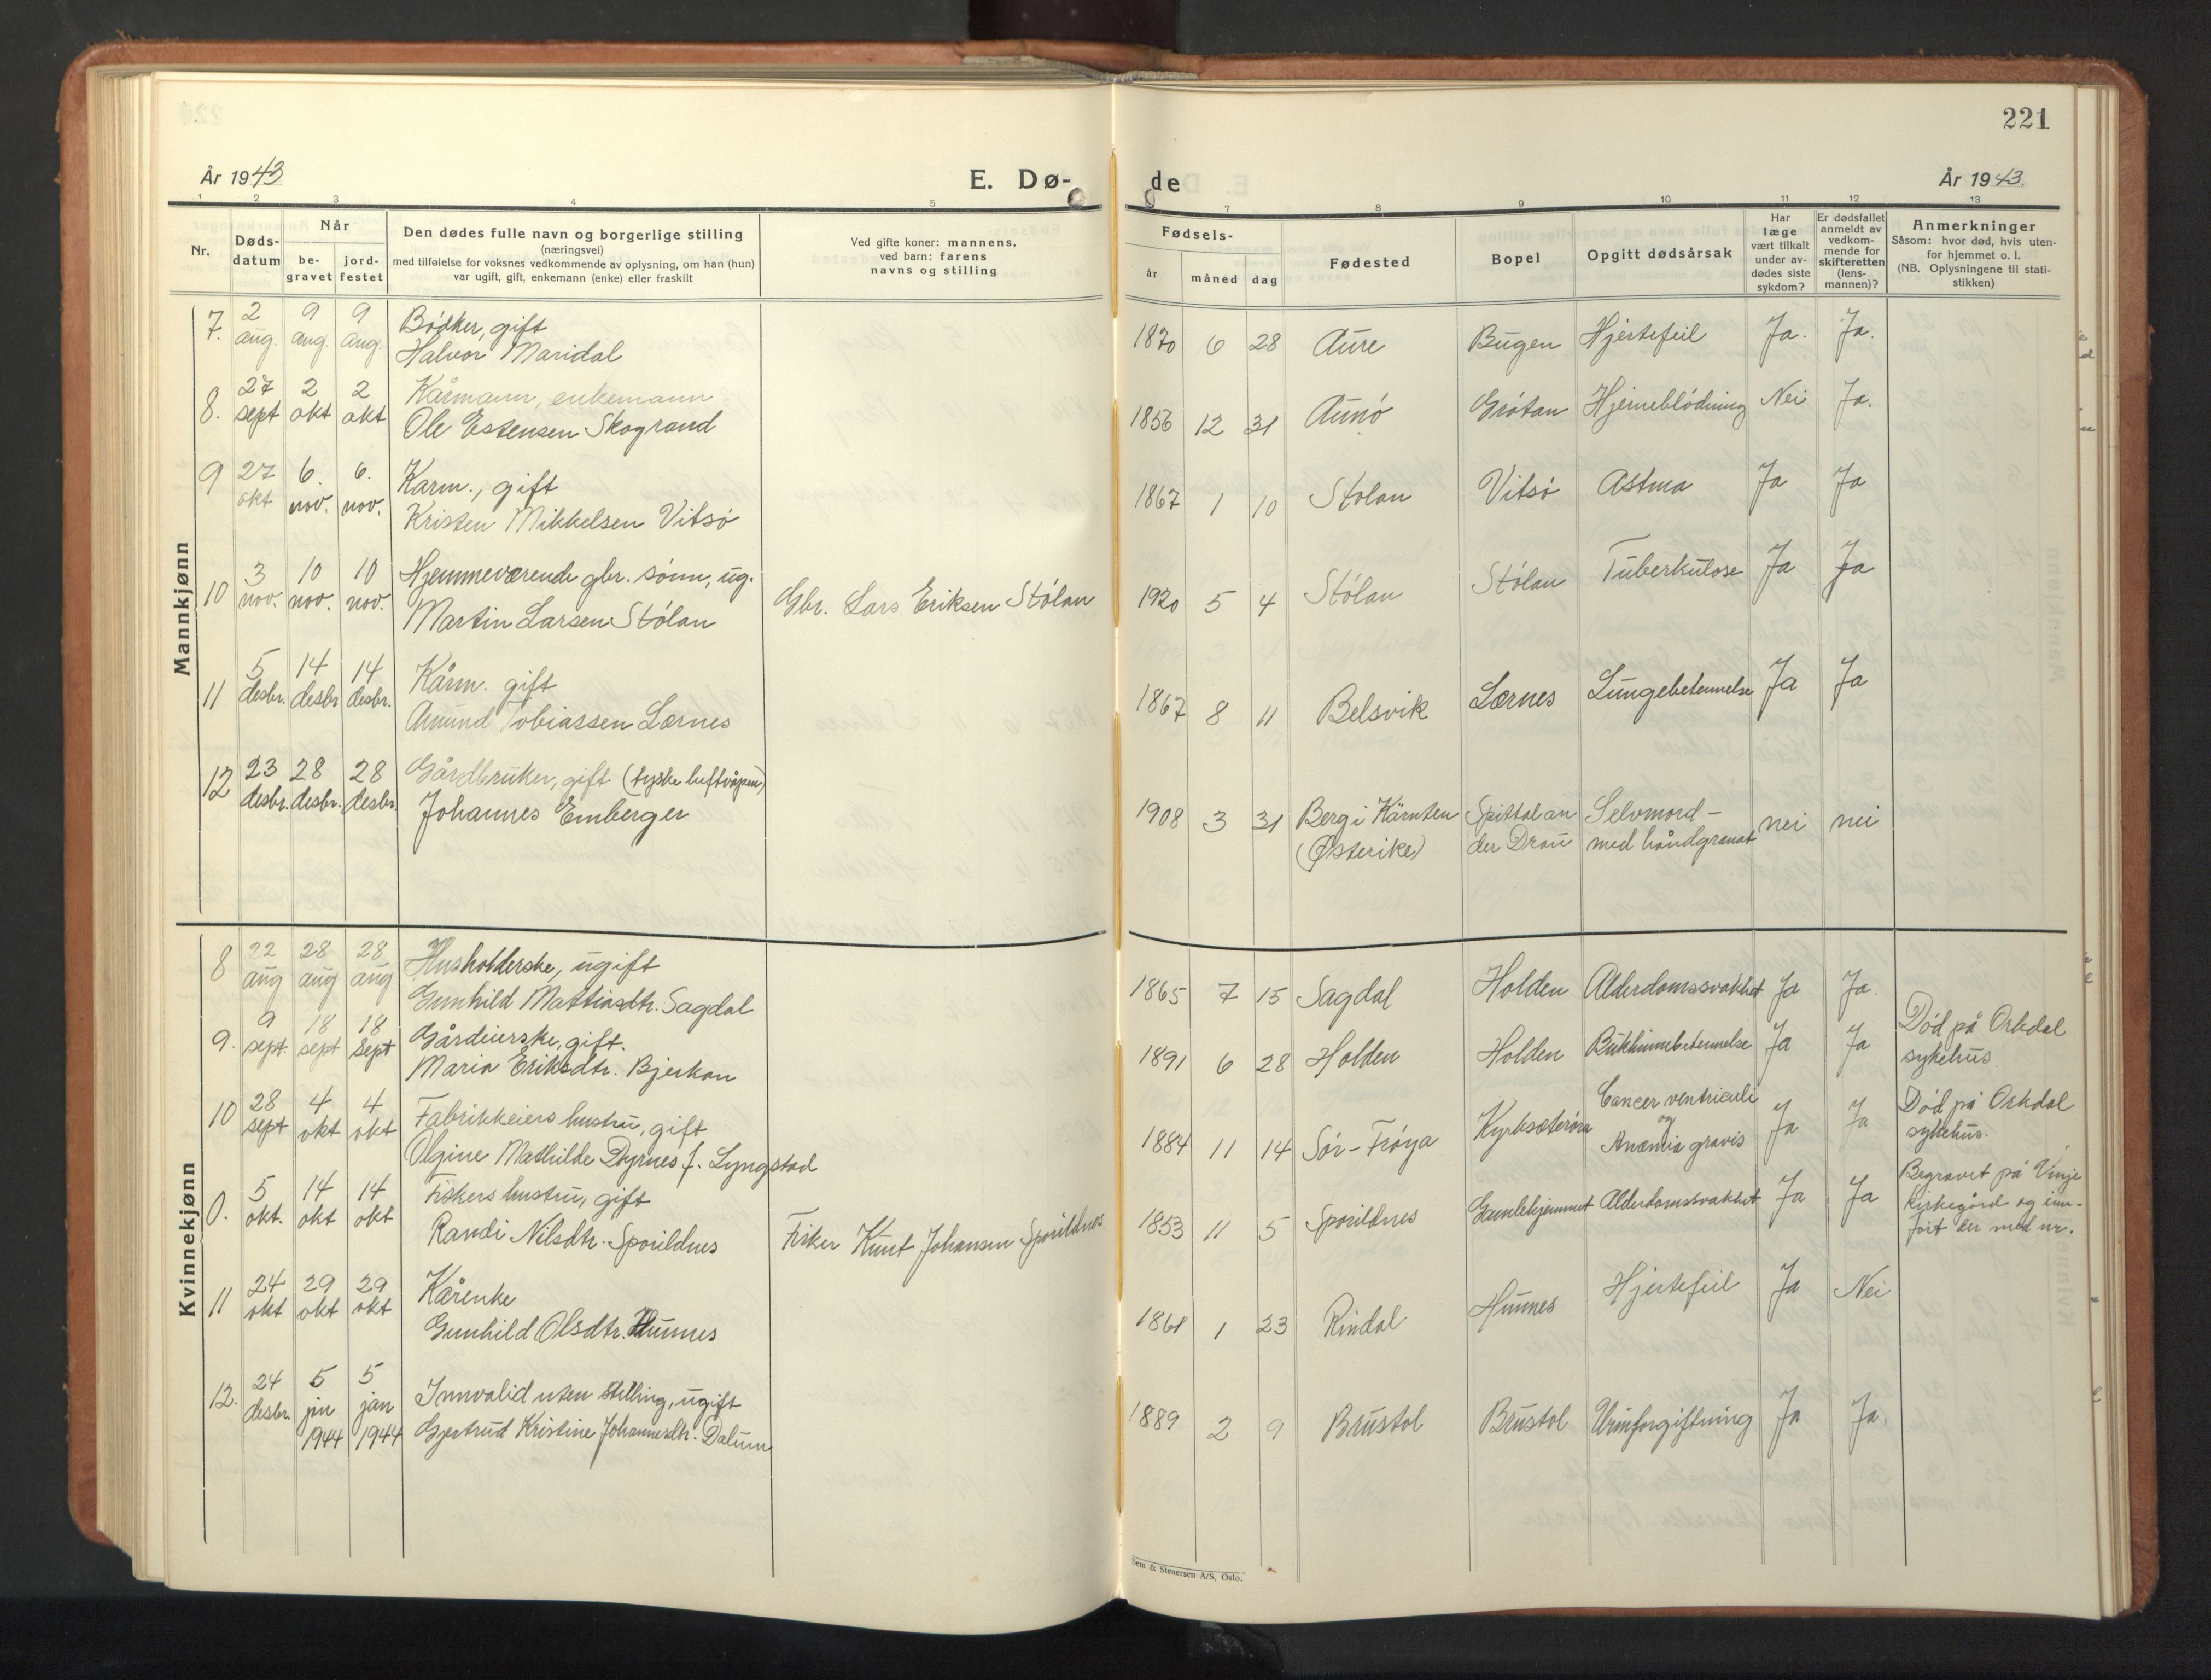 221
År 1943
E. Dø-
de
År 1943.
1 2 3 4 5
7 8 9 10 11 12 13
Nr.
Døds-
datum
Når
be-
gravet
jord-
festet
Den dødes fulle navn og borgerlige stilling
(næringsvei)
med tilføielse for voksnes vedkommende av oplysning, om han (hun)
var ugift, gift, enkemann (enke) eller fraskilt
Ved gifte koner: mannens,
ved barn: farens
navns og stilling
Fødsels-
år
måned
dag
Fødested
Bopel
Opgitt dødsårsak
Har
læge
vært tilkalt
under av-
dødes siste
sykdom?
Er dødsfallet
anmeldt av
vedkom-
mende for
skifteretten
(lens-
mannen)?
Anmerkninger
Såsom: hvor død, hvis uten-
for hjemmet o. l.
(NB. Oplysningene til stati-
stikken)
Mannkjønn
7. 2 aug. 9 aug. 9 aug. Bødker, gift
Halvor Maridal
1870 6 28 Aure Bugen Hjertefeil Ja. Ja.
8. 27 sept 2 okt 2 okt Kårmann, enkemann
Ole Estensen Skogrand
1856 12 31 Aunø Grøtan Hjerneblødning Nei Ja.
9 27 okt 6. nov. 6. nov. Karm., gift
Kristen Mikkelsen Vitsø
1867 1 10 Stølan Vitsø Astma Ja Ja
10 3 nov. 10 nov. 10 nov. Hjemmeværende gbr. sønn, ug.
Martin Larsen Stølan
Gbr. Lars Eriksen Stølan
1920 5 4 Stølan Stølan Tuberkulose Ja Ja
11 5 desbr. 14 desbr 14 desbr. Kårm. gift
Amund Tobiassen Lærnes
1867 8 11 Belsvik Lærnes Lungebetennelse Ja Ja
12 23 desbr. 28 desbr. 28 desbr. Gårdbruker, gift (tyske luftvåpen)
Johannes Emberger
1908 3 31 Berg i Kärnten
(Østerike)
Spittal an
der Drau
Selvmord –
med håndgranat
nei nei
Kvinnekjønn
8 22 aug 28 aug 28 aug Husholderske, ugift
Gunhild Mattiasdtr. Sagdal
1865 7 15 Sagdal Holden Alderdomssvakhet Ja Ja.
9. 9 sept. 18 sept 18 sept Gårdeierske, gift.
Maria Eriksdtr. Bjerkan
1891 6 28 Holden Holden Bukhinnebetennelse Ja Ja
Død på Orkdal
sykehus.
10 28 sept 4 okt 4 okt Fabrikkeiers hustru, gift
Olgine Mathilde Dyrnes f. Lyngstad
1884 11 14 Sør-Frøya Kyrksæterøra
Cancer ventriculi
og
Anæmia gravis
Ja Ja
Død på Orkdal
sykehus.
0. 5 okt. 14 okt 14 okt Fiskers hustru, gift
Randi Nilsdtr. Sporildnes
Fisker Knut Johansen Sporildnes
1853 11 5 Sporildnes Gamlehjemmet Alderdomssvakhet Ja Ja
Begravet på Vinje
kirkegård og inn-
ført der med nr.
11 24 okt 29 okt 29 okt Kårenke
Gunhild Olsdtr. Hunnes
1 23 Rindal Hunnes Hjertefeil Ja Nei
12. 24 desbr. 5 jan 1944 5 jan 1944 Innvalid uten stilling, ugift
Gjertrud Kristine Johannesdtr. Dalum
1889 2 9 Brustol Brustol Urinforgiftning Ja Ja.
Sem & Stenersen A/S, Oslo.